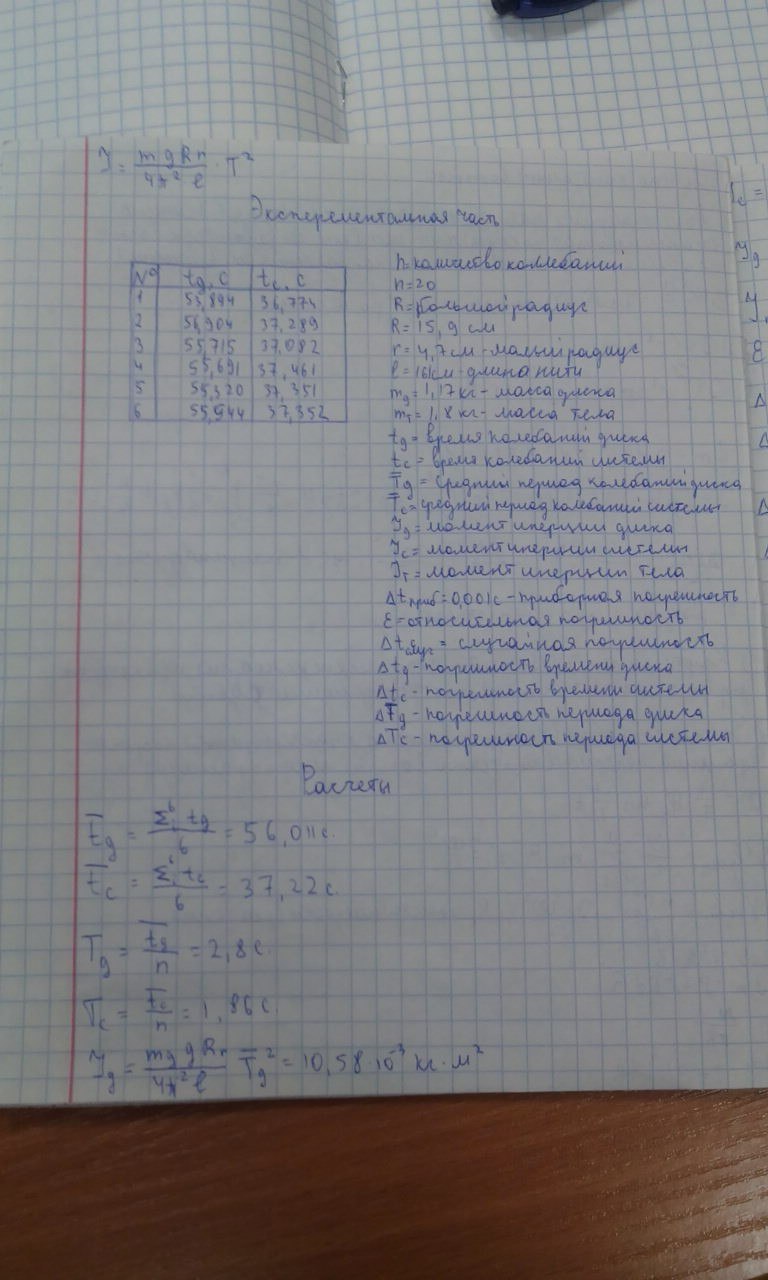 J = mgRr/4π²l · T²
Эксперементальная часть
№ tд, с tс, с
1 55,894 36,774
2 56,904 37,289
3 55,715 37,082
4 55,691 37,461
5 55,320 37,351
6 55,944 37,352
n = количество коллебаний
n = 20
R = большой радиус
R = 15,9 см
r = 4,7 см - малый радиус
l = 161 см - длина нити
mд = 1,17 кг - масса диска
mт = 1,8 кг - масса тела
tд = время колебаний диска
tс = время колебаний системы
T̅д = средний период колебаний диска
T̅с = средний период колебаний системы
Jд = момент инерции диска
Jс = момент инерции системы
Jт = момент инерции тела
Δtприб = 0,001с - приборная погрешность
ε = относительная погрешность
Δtслуч = случайная погрешность
Δtд - погрешность времени диска
Δtс - погрешность времени системы
ΔT̅д - погрешность периода диска
ΔTс - погрешность периода системы
Расчеты
t̅д = Σ⁶ tд/6 = 56,011с.
t̅с = Σ⁶ tс/6 = 37,22с.
Tд = t̅д/n = 2,8с.
Tс = t̅с/n = 1,86с.
Jд = mд g R r/4π²l T̅д² = 10,58·10⁻³ кг·м²